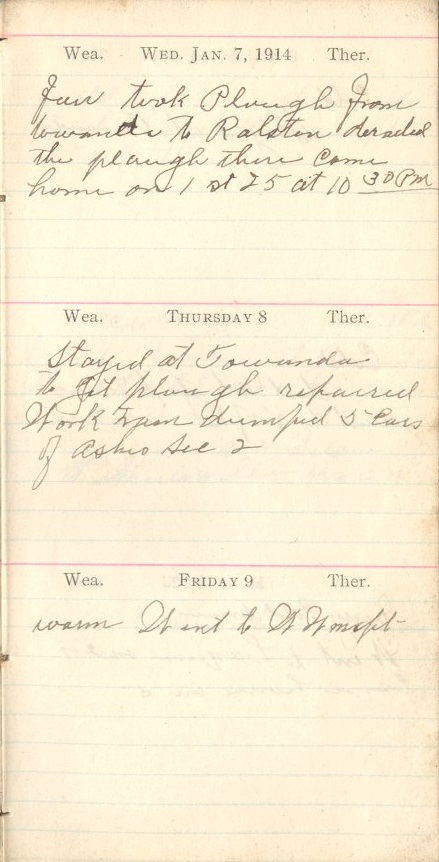 Wea. WED. JAN. 7, 1914 Ther.
took Plough from
towanda to Ralston deraled
the plough there Come
home on 1 st 25 at 10 30 PM
Wea. THURSDAY 8 Ther.
Stayed at Towanda
to get plough repaired
Work train dumped 5 Cars
of Ashes Sec 2
Wea. FRIDAY 9 Ther.
warm Went to W Wmspt